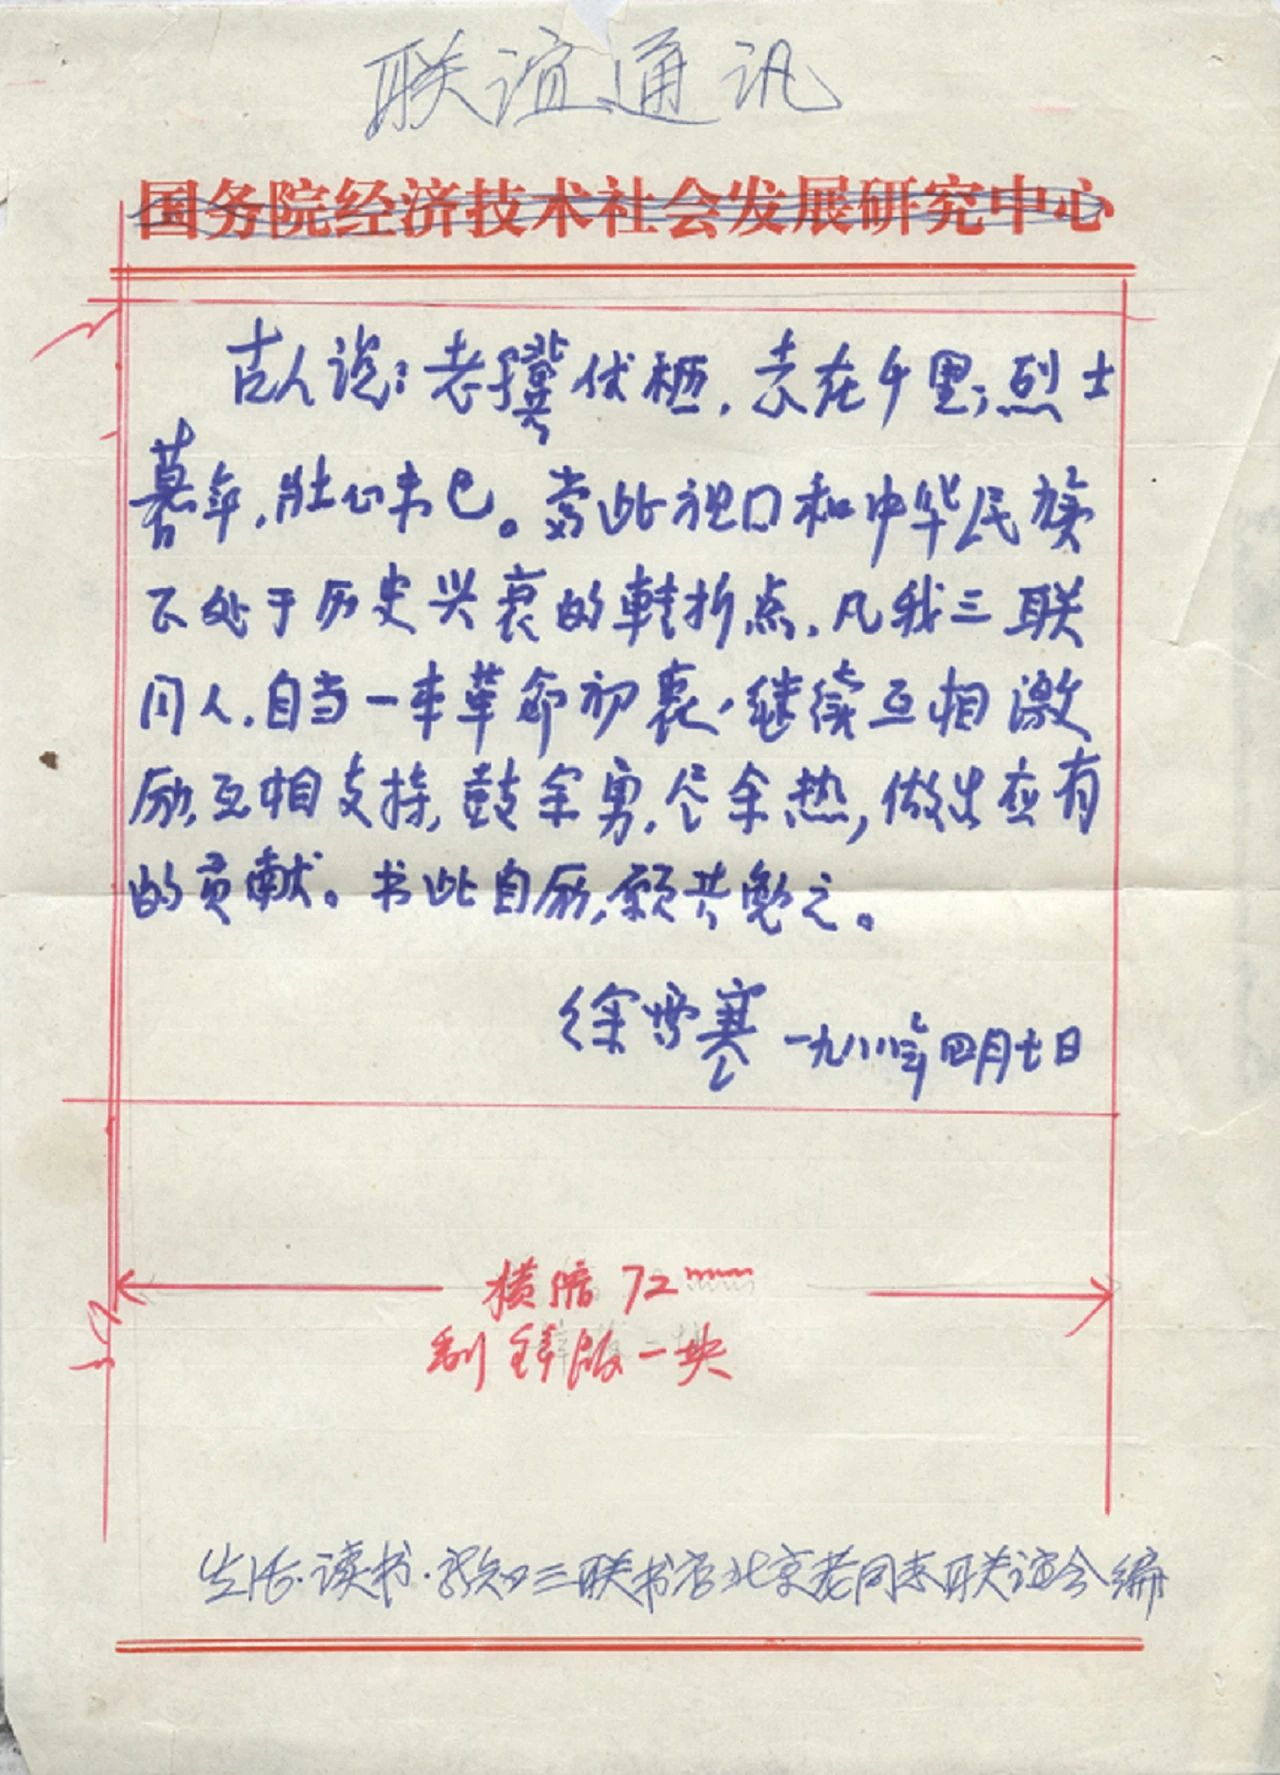 联谊通讯
国务院经济技术社会发展研究中心
古人说：老骥伏枥，志在千里；烈士
暮年，壮心未已。当此祖国和中华民族
正处于历史兴衰的转折点，凡我三联
同人，自当一本革命初衷，继续互相激
励，互相支持，鼓余勇，尽余热，做出应有
的贡献。书此自励，愿共勉之。
徐雪寒 一九八八年四月七日
横缩72mm
制锌版一块
生活·读书·新知三联书店北京老同志联谊会编